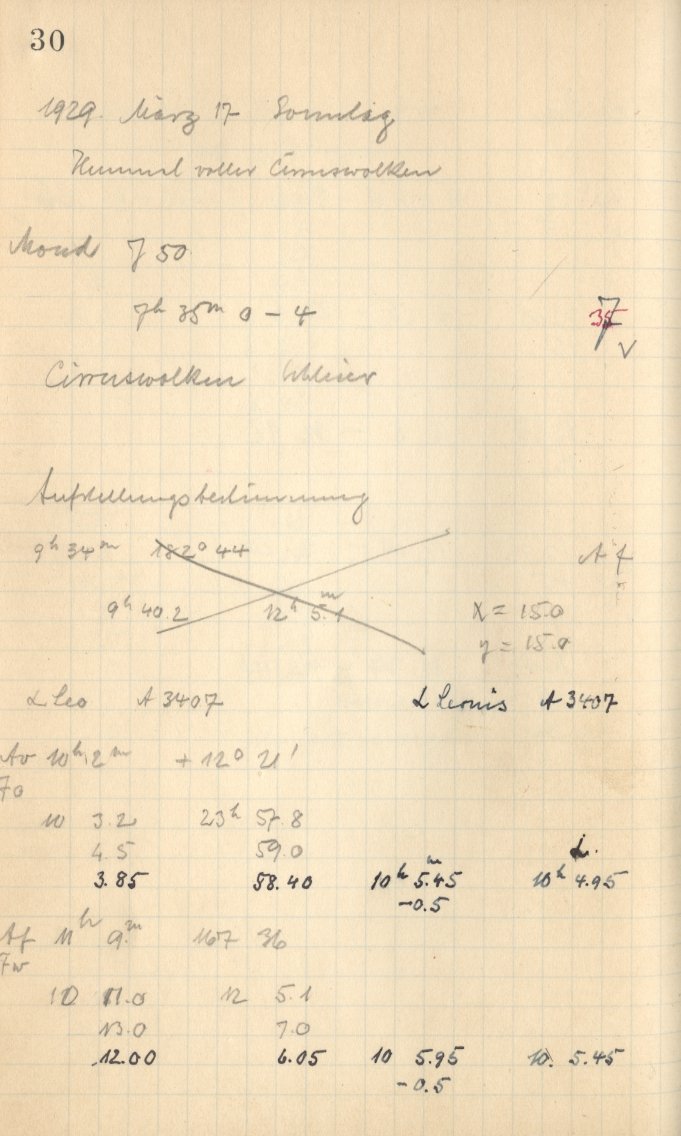 30
1929. März 17 Sonntag
Himmel voller Cirruswolken
Mond 7 50
7h 35m 0 - 4
7
35
V
Cirruswolken Schleier
Aufstellungsbestimmung
9h 34m 182° 44
A f
9h 40.2 12h 5.1m
X = 15.0
y = 15.0
α Leo A 3407 α Leonis A 3407
Av 10h 2m + 12° 21'
Fo
10 3.2 23h 57.8
4.5 59.0
3.85 58.40 10h 5.45m 10h 4.95
-0.5
Af 11h 9m 167 36
Fw
10 11.0 12 5.1
13.0 7.0
12.00 6.05 10 5.95 10. 5.45
-0.5